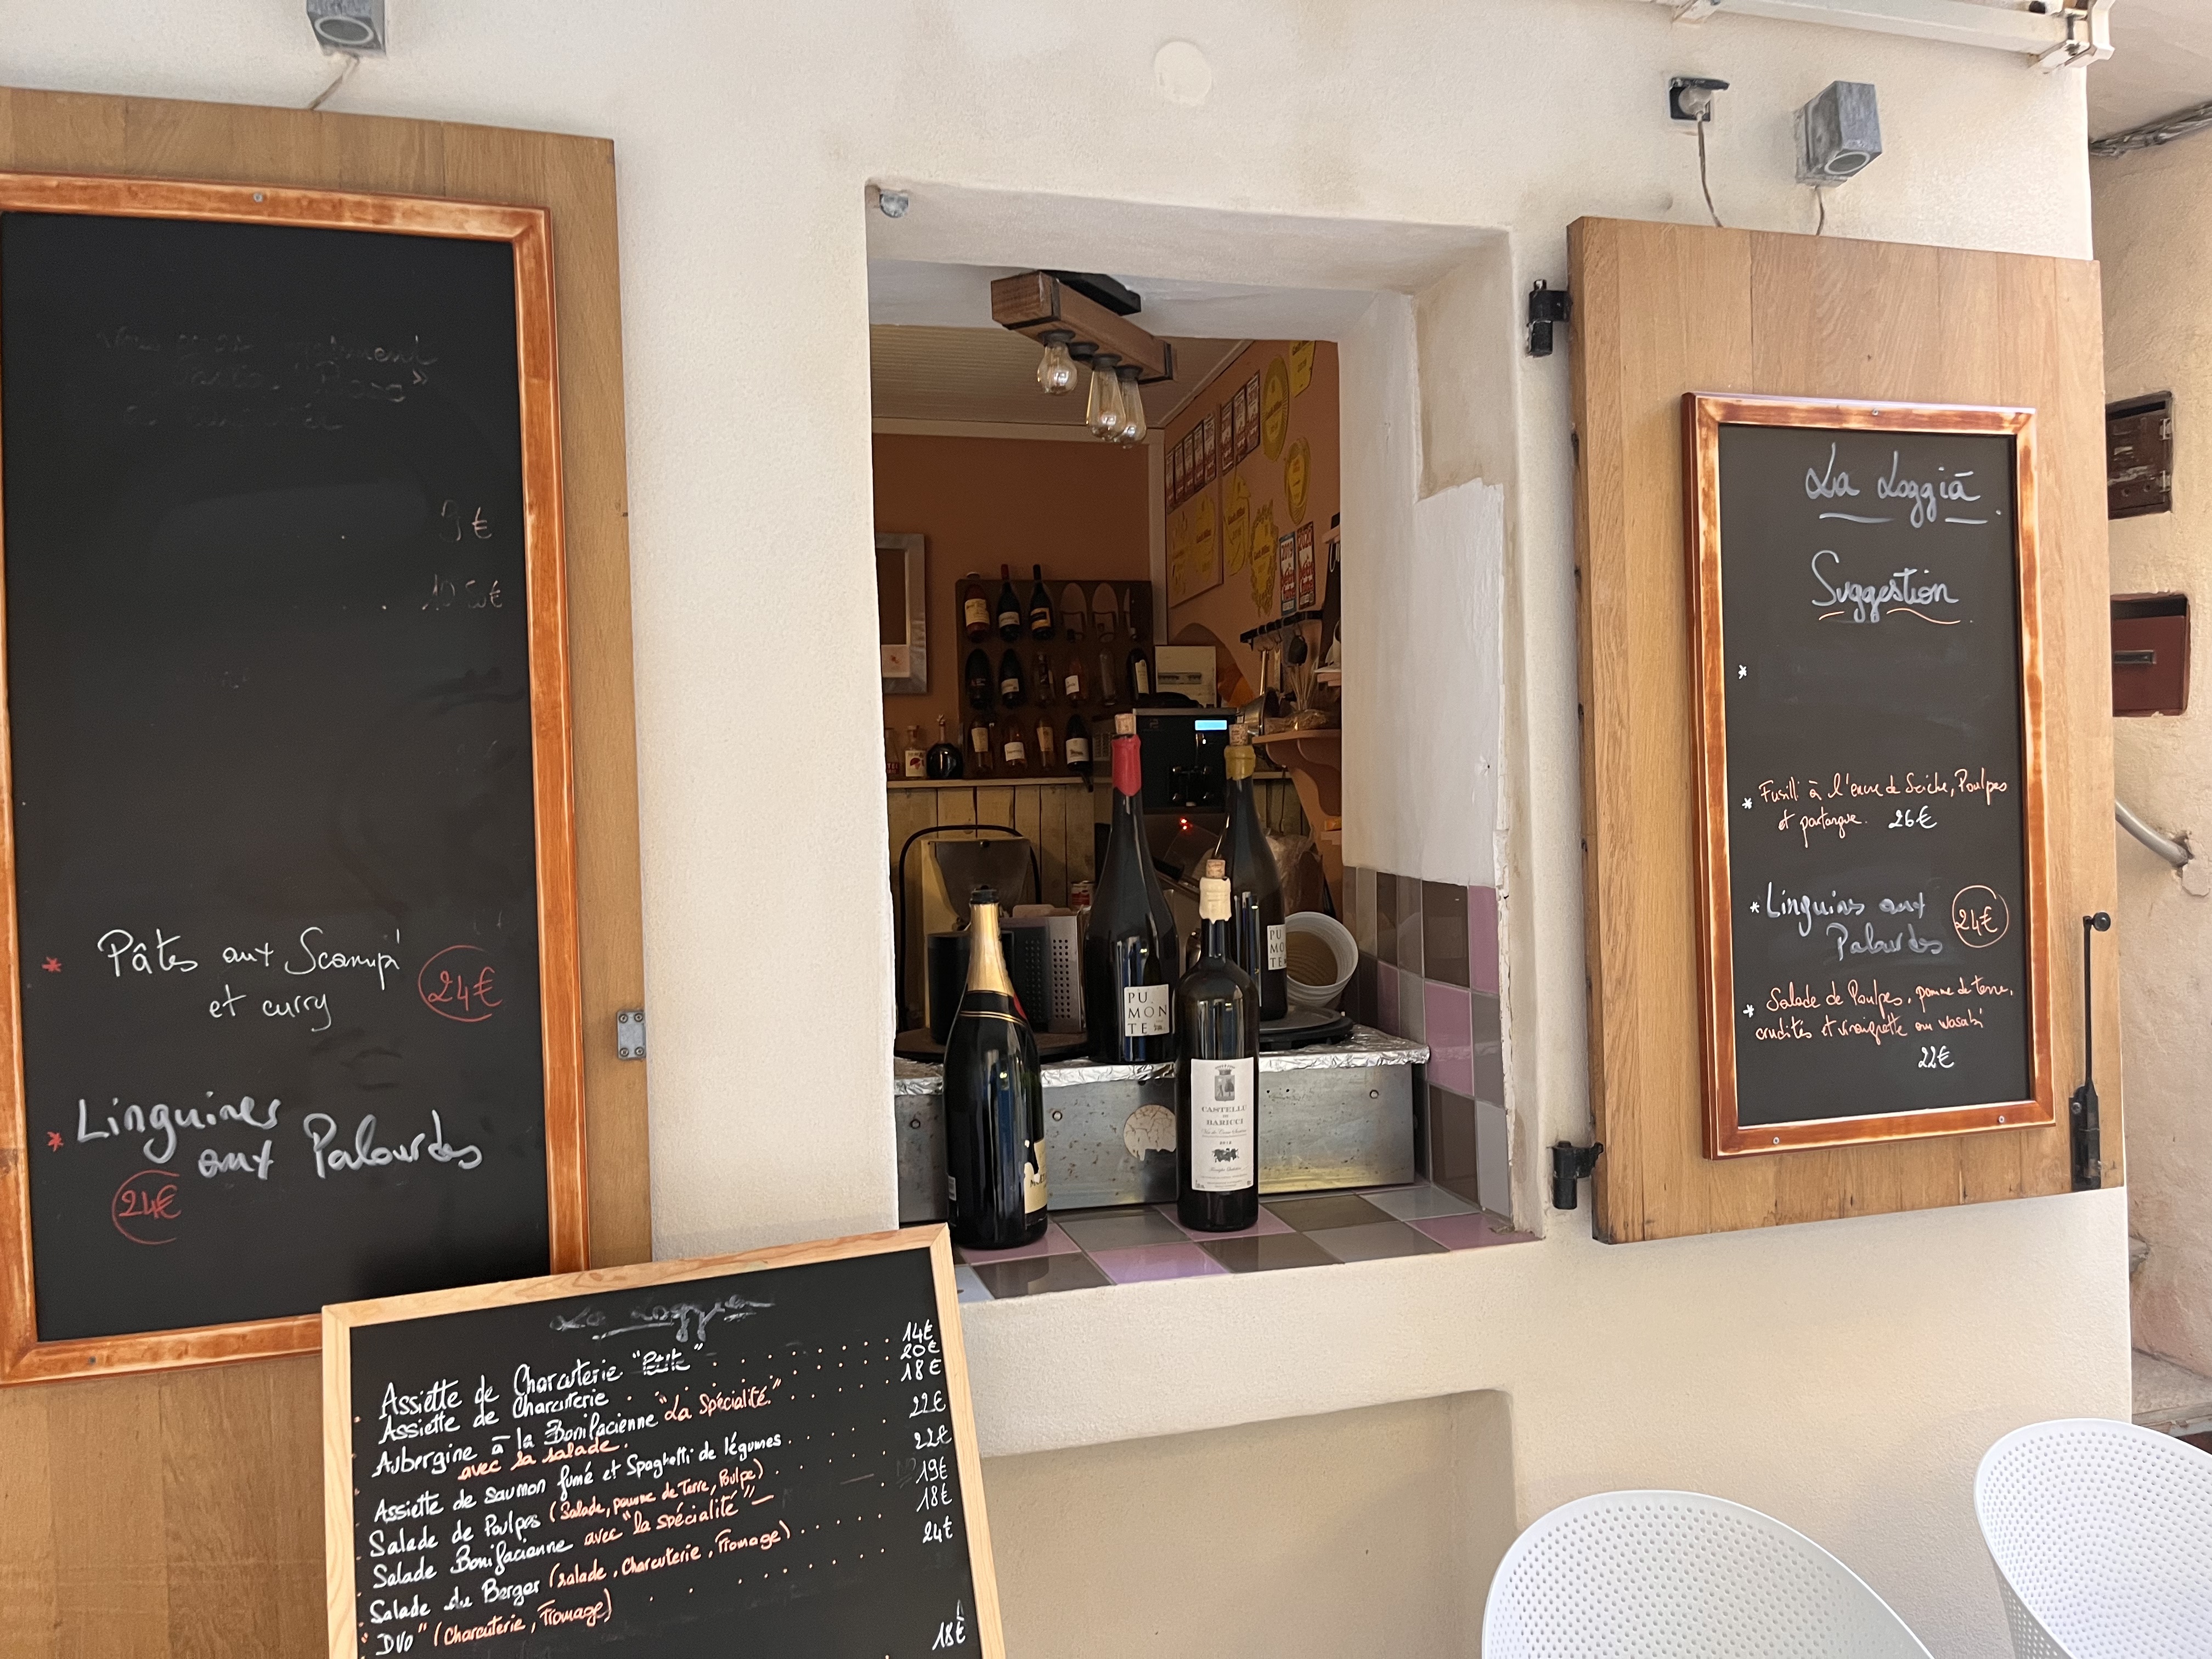 9€
* Pâtes aux Scampi
et curry
24€
* Linguines
aux Palourdes
24€
La Loggia
Assiette de Charcuterie "Petite" 14€
Assiette de Charcuterie 20€
Aubergine à la Bonifacienne "La Spécialité" 18€
avec sa salade.
Assiette de saumon fumé et Spaghetti de légumes 22€
Salade de Poulpes (Salade, pomme de Terre, Poulpe) 22€
Salade Bonifacienne avec "la spécialité" 19€
Salade du Berger (salade, Charcuterie, Fromage) 18€
"DVO" (Charcuterie, Fromage) 24€
18€
PU
MON
TE
PU
MO
TE
CASTELLU
DE
BARICCI
La Loggia
Suggestion
*
* Fusilli à l'encre de Seiche, Poulpes
et poutargue. 26€
* Linguines aux
Palourdes
24€
* Salade de Poulpes, pomme de terre,
crudités et vinaigrette au wasabi
22€